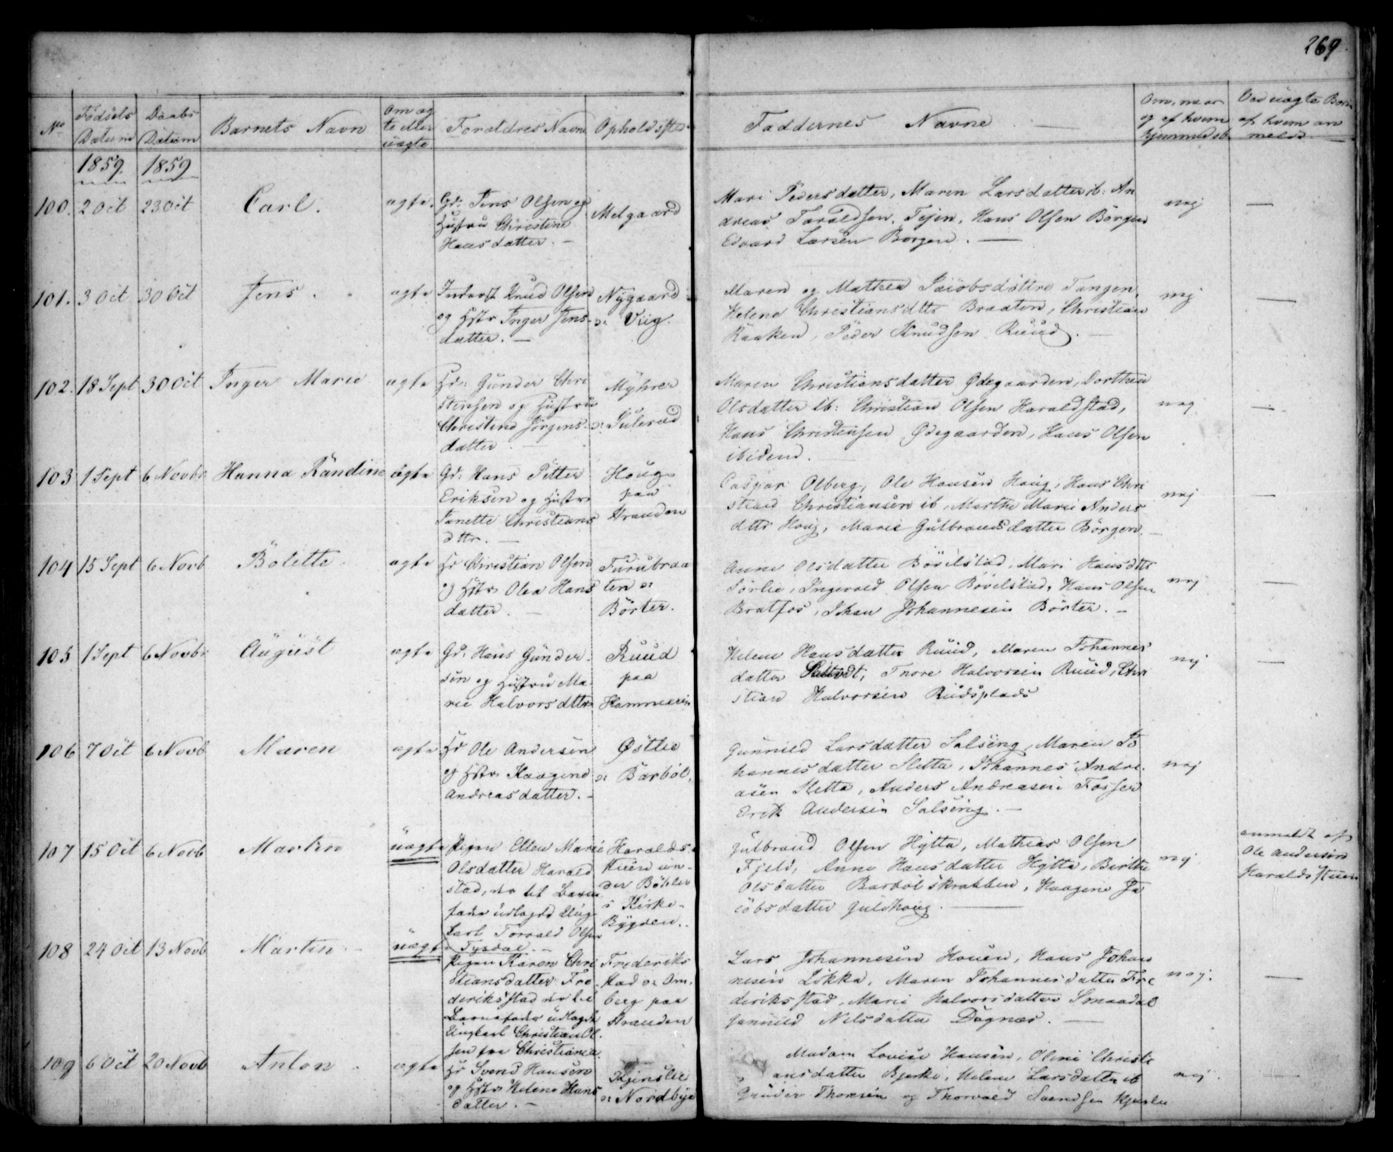 269.
No Fødsels Datum Daabs Datum Barnets Navn Om ægte eller uægte Foraldres Navn Opholdssted Faddernes Navne Om, naar og af hvem hjemmedøbt Ved uagte Børn af hvem anmeldt
1859. 1859
100. 2 Oct 23 Oct Carl. ægte. Gr: Jens Olsen og
Hustru Christine
Hansdatter. —
Melgaard
Mari Pedersdatter, Maren Larsdatter ib: An
dreas Taraldsen, Tejen, Hans Olsen Børgen
Edvard Larsen Borgen. —
nej —
101. 3 Oct 30 Oct Jens. ægte Inderst Knud Olsen
og Hstr Inger Jens-
datter. —
Nygaard
Viig.
Maren og Mathea Jacobsdøttre Tangen,
Helene Christiansdttr Braaten, Christian
Haaken, Peder Knudsen Ruud. —
nej —
102. 18 Sept 30 Oct Inger Marie ægte Hr: Gunder Chri
stensen og Hustru
Christine Jørgens-
datter. —
Myhrer
Sulerud
Maren Christiansdatter Ødegaarden, Dorthea
Olsdatter ib: Christian Olsen Haraldstad,
Hans Christensen Ødegaarden, Hans Olsen
ibidem. —
nej —
103 1 Sept 6 Novbr Hanna Randine ægte Gr: Hans Petter
Eriksen og Hustr:
Janette Christians
dttr. —
Houg
paa
Stranden
Caspar Olberg, Ole Hansen Houg, Hans Chri
stian Christiansen ib, Marthe Marie Anders
dttr Houg, Marie Gulbrandsdatter Børgen —
nej —
104 15 Sept 6 Novb Bolette. ægte Hr Christian Olsen
og Hstr Olea Hans
datter. —
Furubraa
ten
Børter.
Anne Olsdatter Bøvelstad, Mari Hansdttr
Sørlie, Ingevald Olsen Bøvelstad, Hans Olsen
Bratfos, Johan Johannesen Børter. —
nej —
105 1 Sept 6 Novbr August ægte Gr: Hans Gunder-
sen og Hustru Ma-
rie Halvorsdtter
Ruud
paa
Hammeren
Helene Hansdatter Ruud, Maren Johannes
datter, Thore Halvorsen Ruud, Chri
stian Halvorsen Rudsplads
nej —
106 7 Oct 6 Novb Maren ægte Hr Ole Andersen
og Hstr. Kaagine
Andreasdatter. —
Østlie
Barbøl.
Gunnild Larsdatter Solseng, Maren Jo
hannesdatter Sletta, Johannes Andre
asen Sletta, Anders Andreasen Fosser
Erik Andersen Solseng. —
nej
107 15 Oct 6 Novb Martin uægte Pigen Ellen Marie
Olsdatter Harald
stad, der til Barne
fader udlagde Ung
karl Torvald Olsen
Tysdal. —
Haralds-
Huen un-
der Bøhler
i Kirke-
Bygden.
Gulbrand Olsen Hytta, Mathias Olsen
Fjeld, Anne Hansdatter Hytta, Berthe
Olsdatter Barbolskrakken, Kaagine Ja
cobsdatter Guldhoug. —
nej
anmeldt af
Ole Andersen
Haraldshuen
108 24 Oct 13 Novb Martin uægte Pigen Karen Chri
stiansdatter Fre
deriksstad der til
Barnefader udlagde
Ungkarl Christian Ol
sen fra Christiania
Frederiks
stad Om
berg paa
Stranden
Lars Johannesen Houen, Hans Johan
nesen Løkka, Maren Johannesdatter Fre
deriksstad, Marie Halvorsdatter Smaadal
Gunnild Nilsdatter Dagnæs. —
nej. —
109 6 Oct 20 Novb Anton. ægte Hr Svend Hansen
og Hstr Helene Hans
datter. —
Kjenslie
Nordbye
Madam Lovise Hansen, Oline Christi
ansdatter Bjerke, Helene Larsdatter ib
Gunder Thoresen og Thorvald Svendsen Kjenslie
nej —